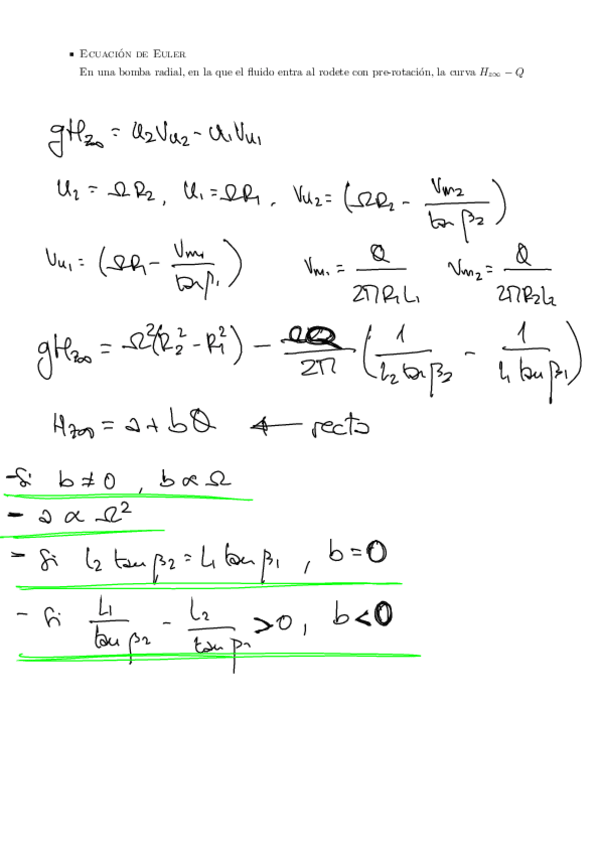 ▪ Ecuación de Euler
En una bomba radial, en la que el fluido entra al rodete con pre-rotación, la curva H_{z∞} − Q
gH_{z∞} = U₂V_{u2} - U₁V_{u1}
U₂ = ΩR₂, U₁ = ΩR₁, V_{u2} = (ΩR₂ - V_{m2}/tan β₂)
V_{u1} = (ΩR₁ - V_{m1}/tan β₁) V_{m1} = Q/2πR₁L₁ V_{m2} = Q/2πR₂L₂
gH_{z∞} = Ω²(R₂² - R₁²) - ΩQ/2π (1/L₂ tan β₂ - 1/L₁ tan β₁)
H_{z∞} = a + bQ ← recta
- Si b ≠ 0, b ∝ Ω
- a ∝ Ω²
- Si L₂ tan β₂ = L₁ tan β₁, b = 0
- Si L₁/tan β₂ - L₂/tan β₁ > 0, b < 0